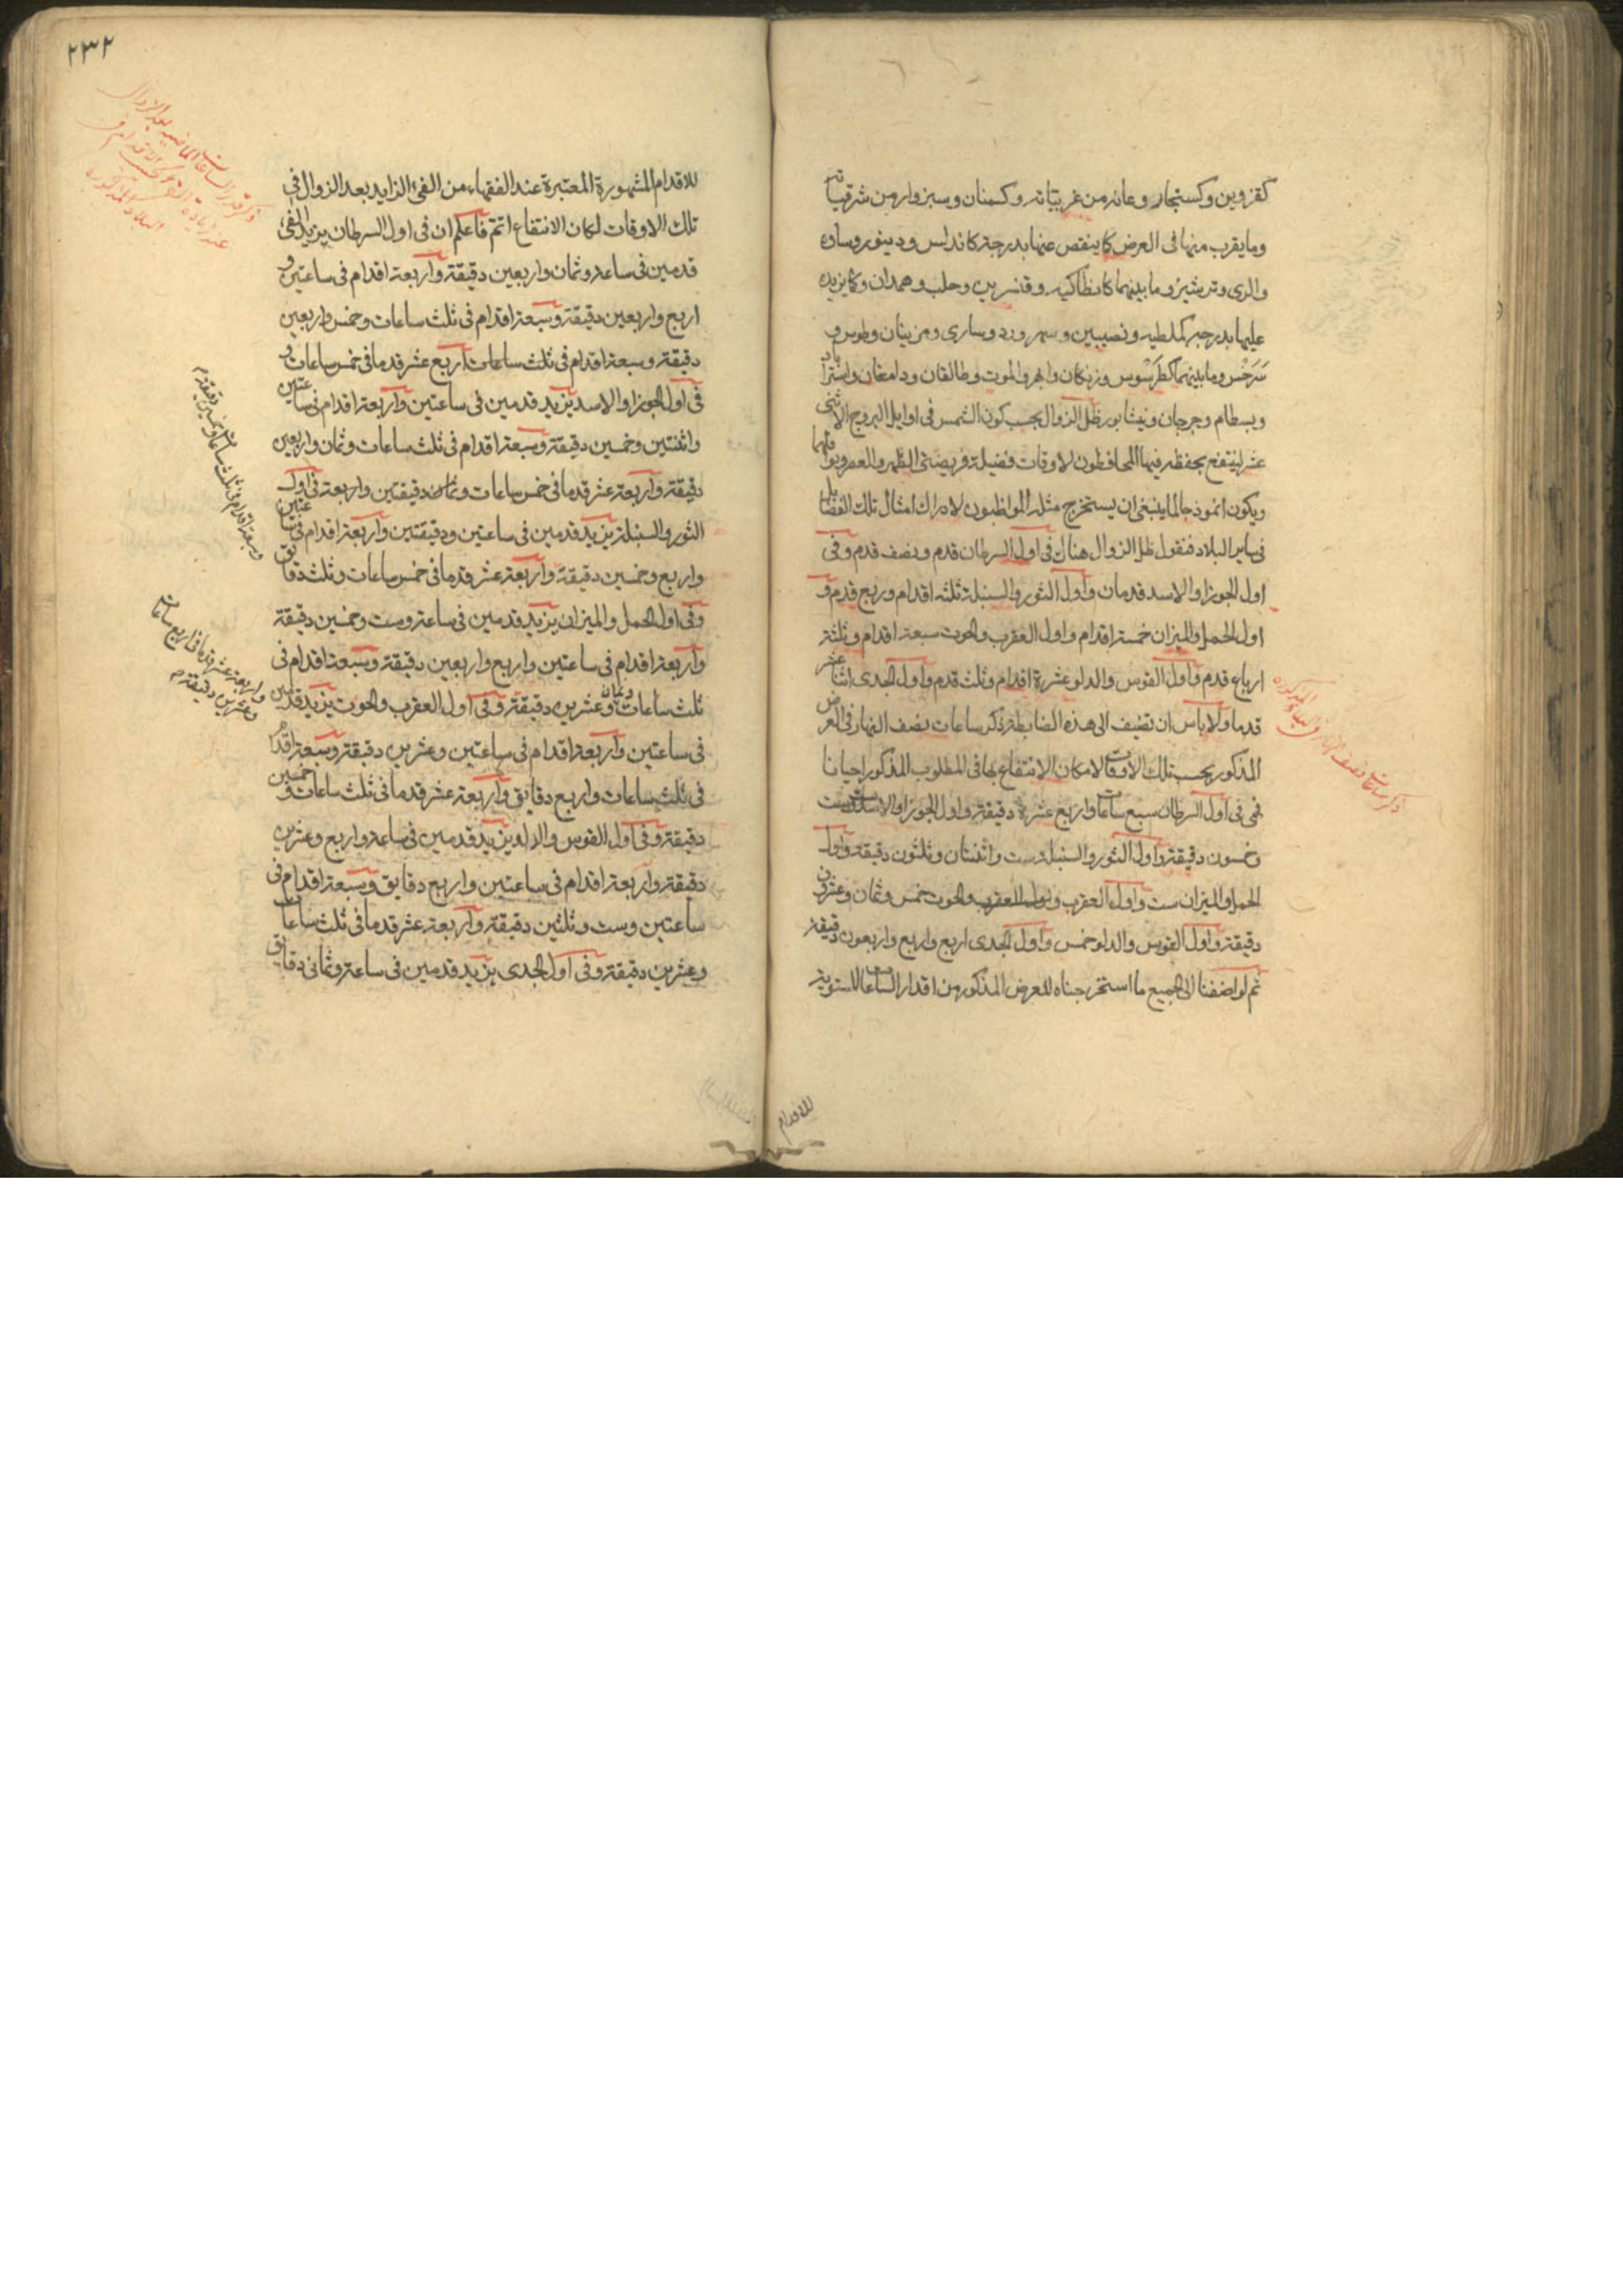 كقزوين وكسنجار وعانه من غربيّاته وكسمنان وسبزوار من شرقياته
وما يقرب منها فى العرض كما ينقص عنها بدرجة كاندلس ودينور وساوه
والرى وترشيز وما بينهما كانطاكيه وقنسرين وحلب وهمدان وكما يزيد
عليها بدرجة كملطيه ونصيبين وسهرورد وسارى ومزينان وطوس و
سَرَخْس وما بينهما كطَرَسُوس وزنكان وابهر والموت وطالقان ودامغان واستراباد
وبسطام وجرجان ونيشابور ظل الزوال بحسب كون الشمس فى اوايل البروج الاثنى
عشر لينتفع بحفظه فيها المحافظون لاوقات فضيلة فريضتى الظهر والعصر ونوافلهما
ويكون انموذجا لما ينبغى ان يستخرج مثله المواظبون لادراك امثال تلك الفضايل
فى ساير البلاد فنقول ظل الزوال هناك فى اول السرطان قدم ونصف قدم وفى
اول الجوزا والاسد قدمان واول الثور والسنبلة ثلثه اقدام وربع قدم و
اول الحمل والميزان خمسة اقدام واول العقرب والحوت سبعة اقدام وثلثة
ارباع قدم واول القوس والدلو عشرة اقدام وثلث قدم واول الجدى اثنا عشر
قدما ولا باس ان نضيف الى هذه الضابطة ذكر ساعات نصف النهار فى العرض
المذكور بحسب تلك الاوقات لامكان الانتفاع بها فى المطلوب المذكور احيانا
فهى فى اول السرطان سبع ساعات واربع عشرة دقيقة واول الجوزا والاسد ست
وخمسون دقيقة واول الثور والسنبلة ست واثنتان وثلثون دقيقة واول
الحمل والميزان ست واول العقرب والحوت خمس وثمان وعشرون
دقيقة واول القوس والدلو خمس واول الجدى اربع واربع واربعون دقيقة
ثم لو اضفنا الى الجميع ما استخرجناه للعرض المذكور من اقدار الساعات المستوية
للاقدام
٢٣٢
للاقدام المشهورة المعتبرة عند الفقهاء من الفئ الزايد بعد الزوال فى
تلك الاوقات لكان الانتفاع اتمّ فاعلم ان فى اول السرطان يزيد الفئ
قدمين فى ساعة وثمان واربعين دقيقة واربعة اقدام فى ساعتين و
اربع واربعين دقيقة وسبعة اقدام فى ثلث ساعات وخمس واربعين
دقيقة وسبعة اقدام فى ثلث ساعات اربع عشر قدما فى خمس ساعات و
فى اول الجوزا والاسد يزيد قدمين فى ساعتين واربعة اقدام فى ساعتين
واثنتين وخمسين دقيقة وسبعة اقدام فى ثلث ساعات وثمان واربعين
دقيقة واربعة عشر قدما فى خمس ساعات دقيقتين واربعة فى اول
الثور والسنبلة يزيد قدمين فى ساعتين ودقيقتين واربعة اقدام فى ساعتين
واربع وخمسين دقيقة واربعة عشر قدما فى خمس ساعات وثلث دقايق
وفى اول الحمل والميزان يزيد قدمين فى ساعة وست وخمسين دقيقة
واربعة اقدام فى ساعتين واربع واربعين دقيقة وسبعة اقدام فى
ثلث ساعات وثمان وعشرين دقيقة وفى اول العقرب والحوت يزيد قدمين
فى ساعتين واربعة اقدام فى ساعتين وعشرين دقيقة وسبعة اقدام
فى ثلث ساعات واربع دقايق واربعة عشر قدما فى ثلث ساعات وخمسين
دقيقة وفى اول القوس والدلو يزيد قدمين فى ساعة واربع وعشرين
دقيقة واربعة اقدام فى ساعتين واربع دقايق وسبعة اقدام فى
ساعتين وست وثلثين دقيقة واربعة عشر قدما فى ثلث ساعات
وعشرين دقيقة وفى اول الجدى يزيد قدمين فى ساعة وثمانى دقايق
وسبعة اقدام فى ثلث ساعات وخمسين دقيقة م
واربعة عشر قدما فى اربع ساعات
وعشرين دقيقة م